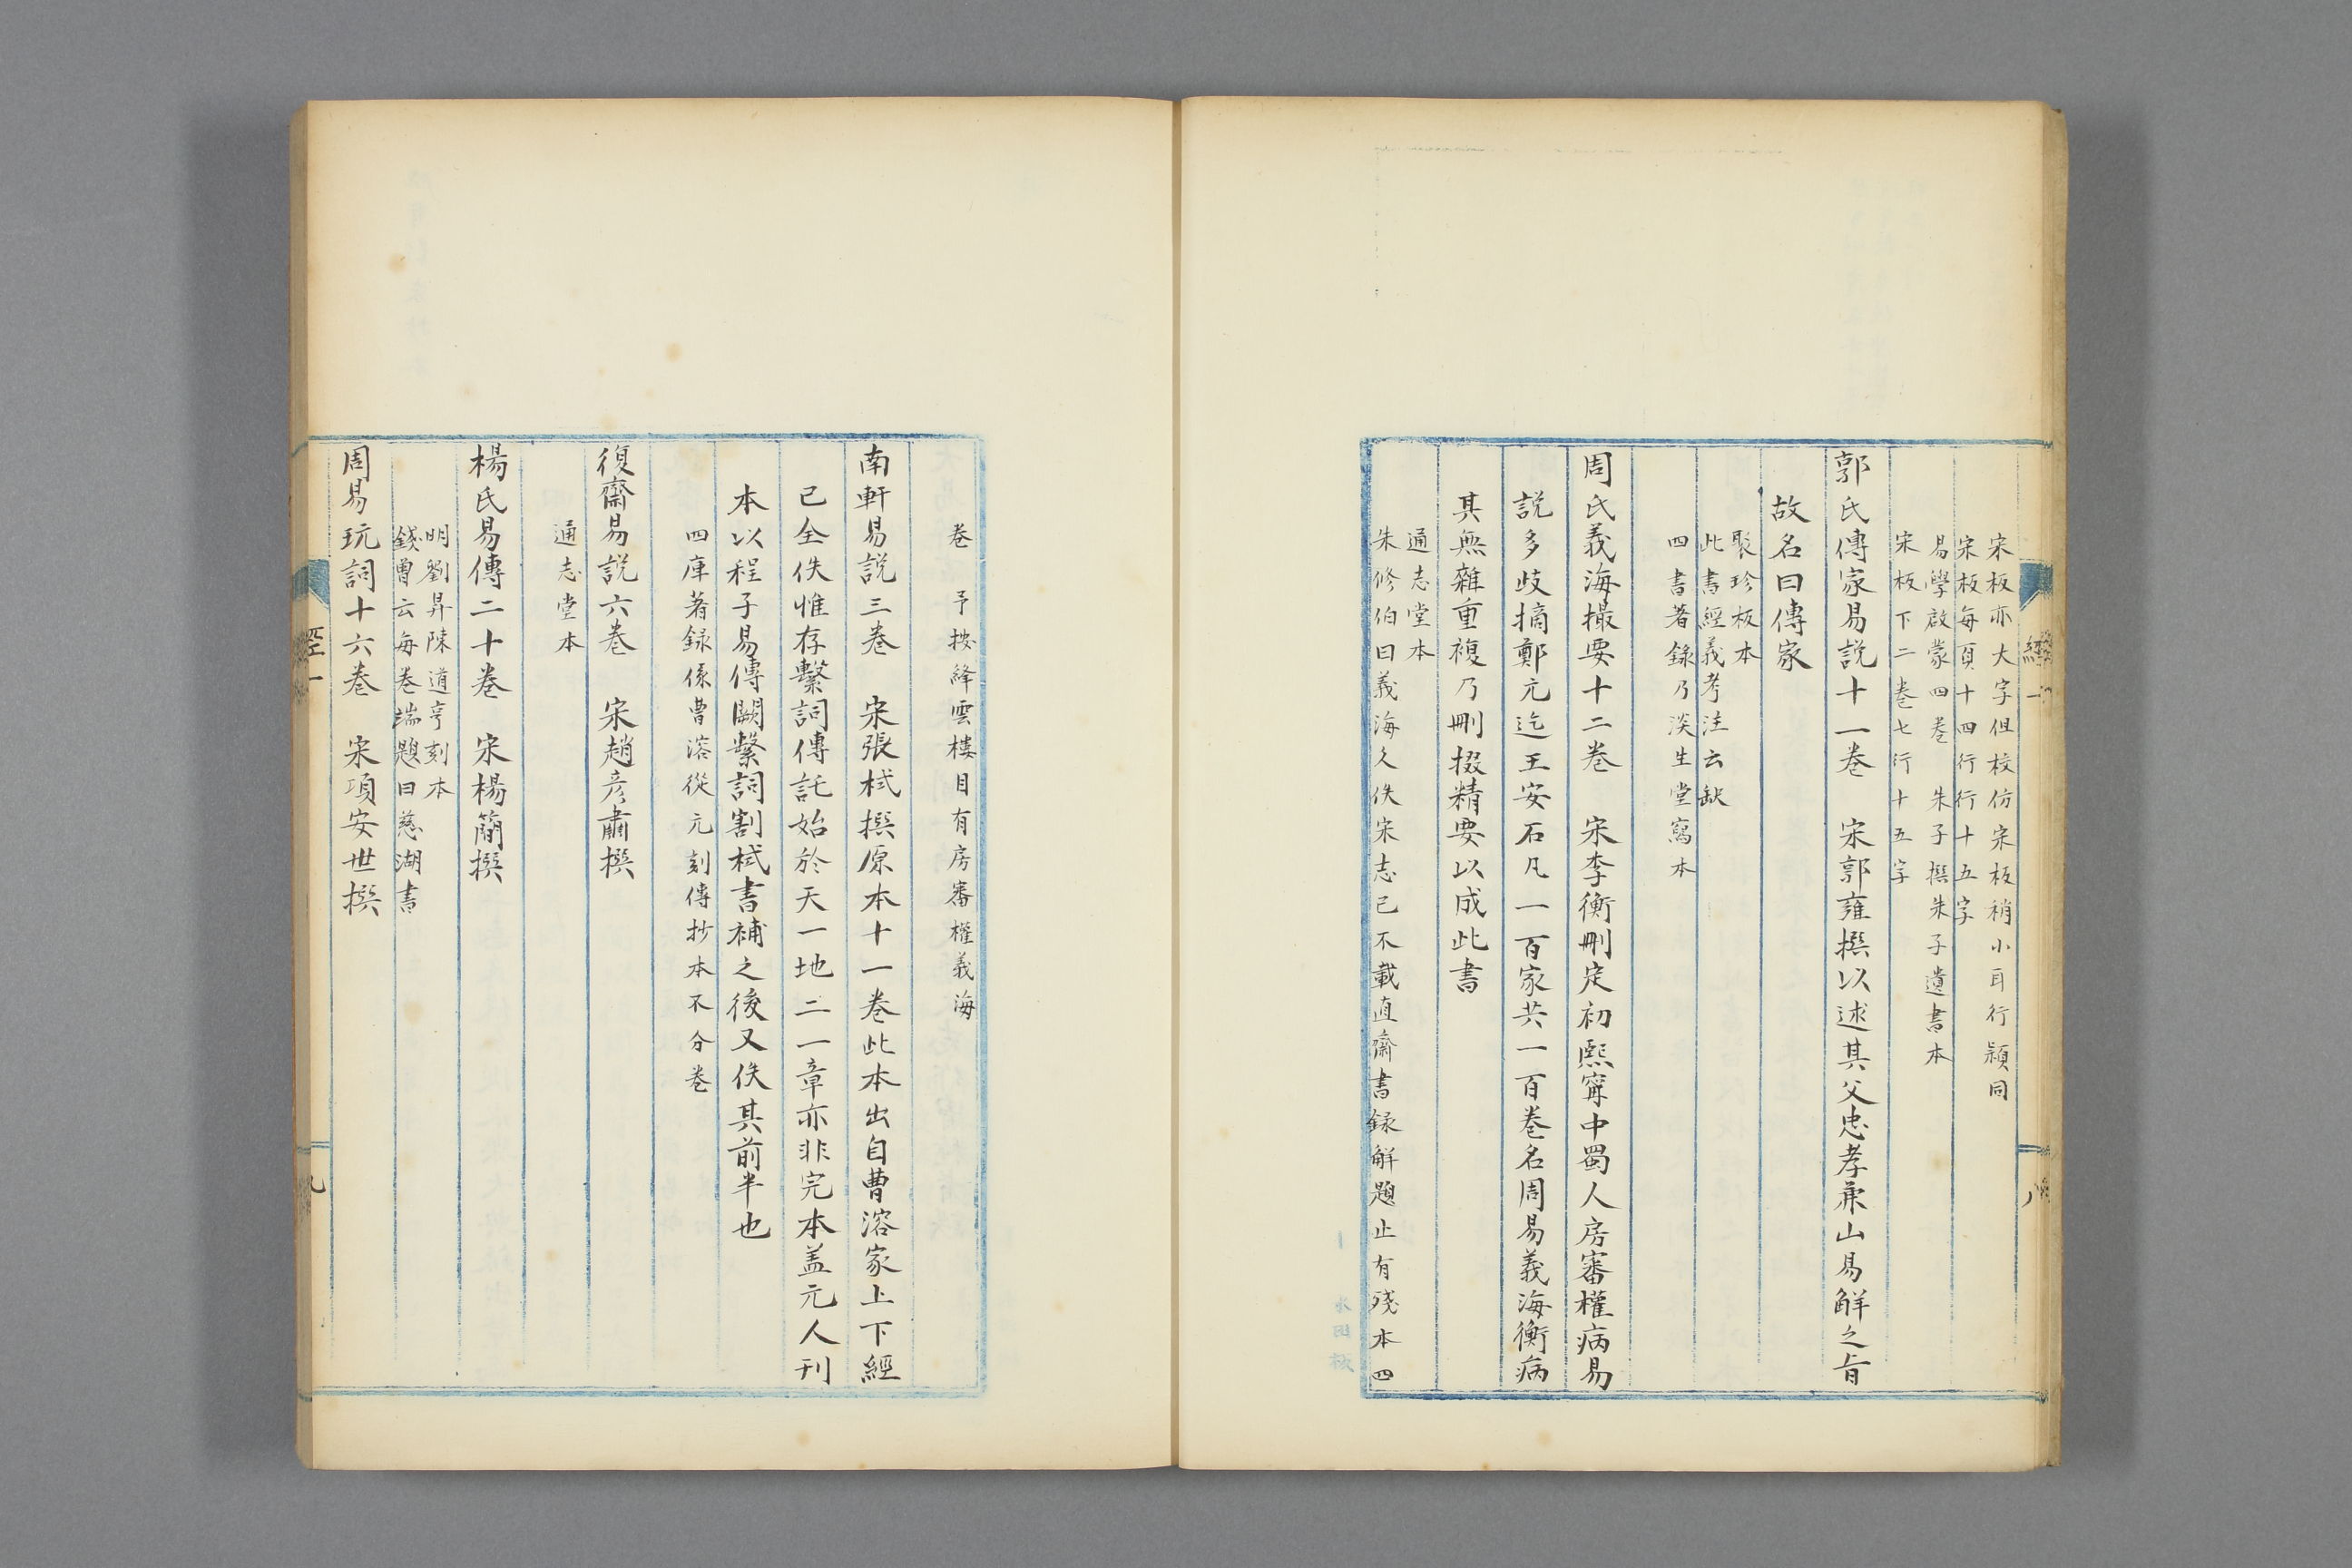 宋板亦大字但校仿宋板稍小耳行款同
宋板每頁十四行行十五字
易學啟蒙四卷　朱子撰朱子遺書本
宋板下二卷七行十五字
郭氏傳家易説十一卷　宋郭雍撰以述其父忠孝兼山易解之旨
故名曰傳家
聚珍板本
此書經義考注云缺
四書著錄乃淡生堂寫本
周氏義海撮要十二卷　宋李衡刪定初熙寧中蜀人房審權病易
説多歧摘鄭元迄王安石凡一百家共一百卷名周易義海衡病
其無雜重複乃刪掇精要以成此書
通志堂本
朱修伯曰義海久佚宋志已不載直齋書録解題止有殘本四
卷　予按絳雲樓目有房審權義海
南軒易説三卷　宋張栻撰原本十一卷此本出自曹溶家上下經
已全佚惟存繫詞傳託始於天一地二一章亦非完本盖元人刊
本以程子易傳闕繫詞割栻書補之後又佚其前半也
四庫著錄係曹溶從元刻傳抄本不分卷
復齋易説六卷　宋趙彦肅撰
通志堂本
楊氏易傳二十卷　宋楊簡撰
明劉昇陳道亨刻本
錢曾云每卷端題曰慈湖書
周易玩詞十六卷　宋項安世撰
經一
八
經一
九